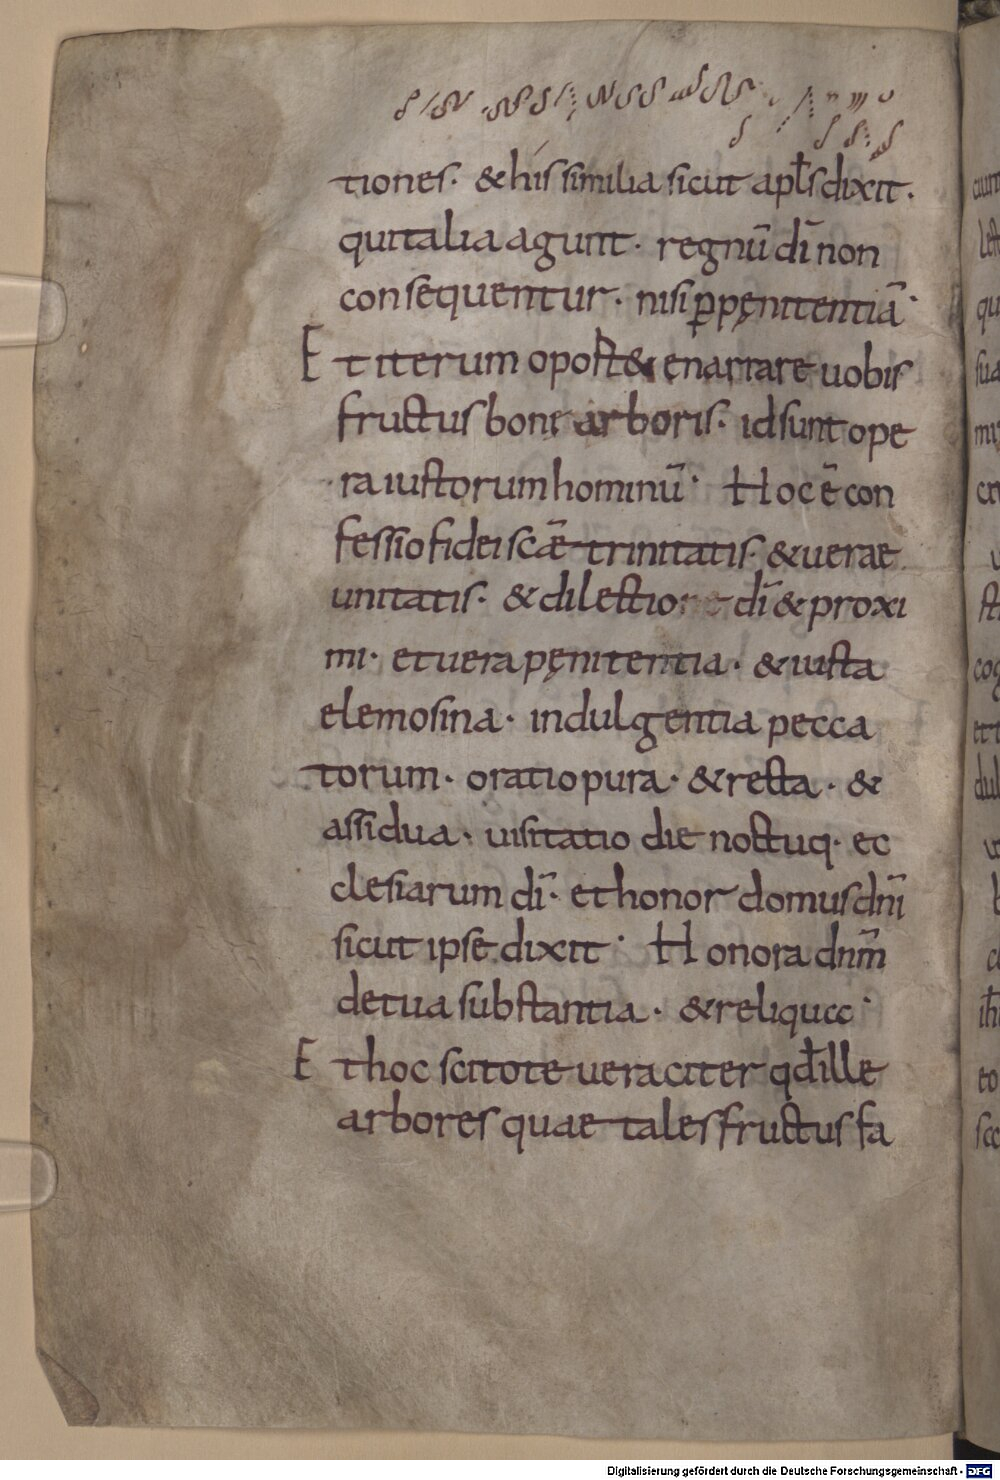 tiones· & his similia sicut apłs dixit·
q̄ui talia agunt· regnū dī non
consequentur· nisi p̱ pęnitentiā·
Et iterum oport& enarrare uobis
fructus boni arboris· id sunt ope
ra iustorum hominū· Hoc ē con
fessio fidei sc̄ae trinitatis· & uerae
unitatis· & dilectione dī & proxi
mi· et uera pęnitentia· & iusta
elemosina· indulgentia pecca
torum· oratio pura· & recta· &
assidua· uisitatio die noctuq· ec
clesiarum dī· et honor domus dn̄i
sicut ipse dixit· Honora dnm̄
de tua substantia· & reliqucc·
Et hoc scitote ueraciter qđ ille
arbores quae tales fructus fa
cium
qu
sua
mi
Digitalisierung gefördert durch die Deutsche Forschungsgemeinschaft - DFG